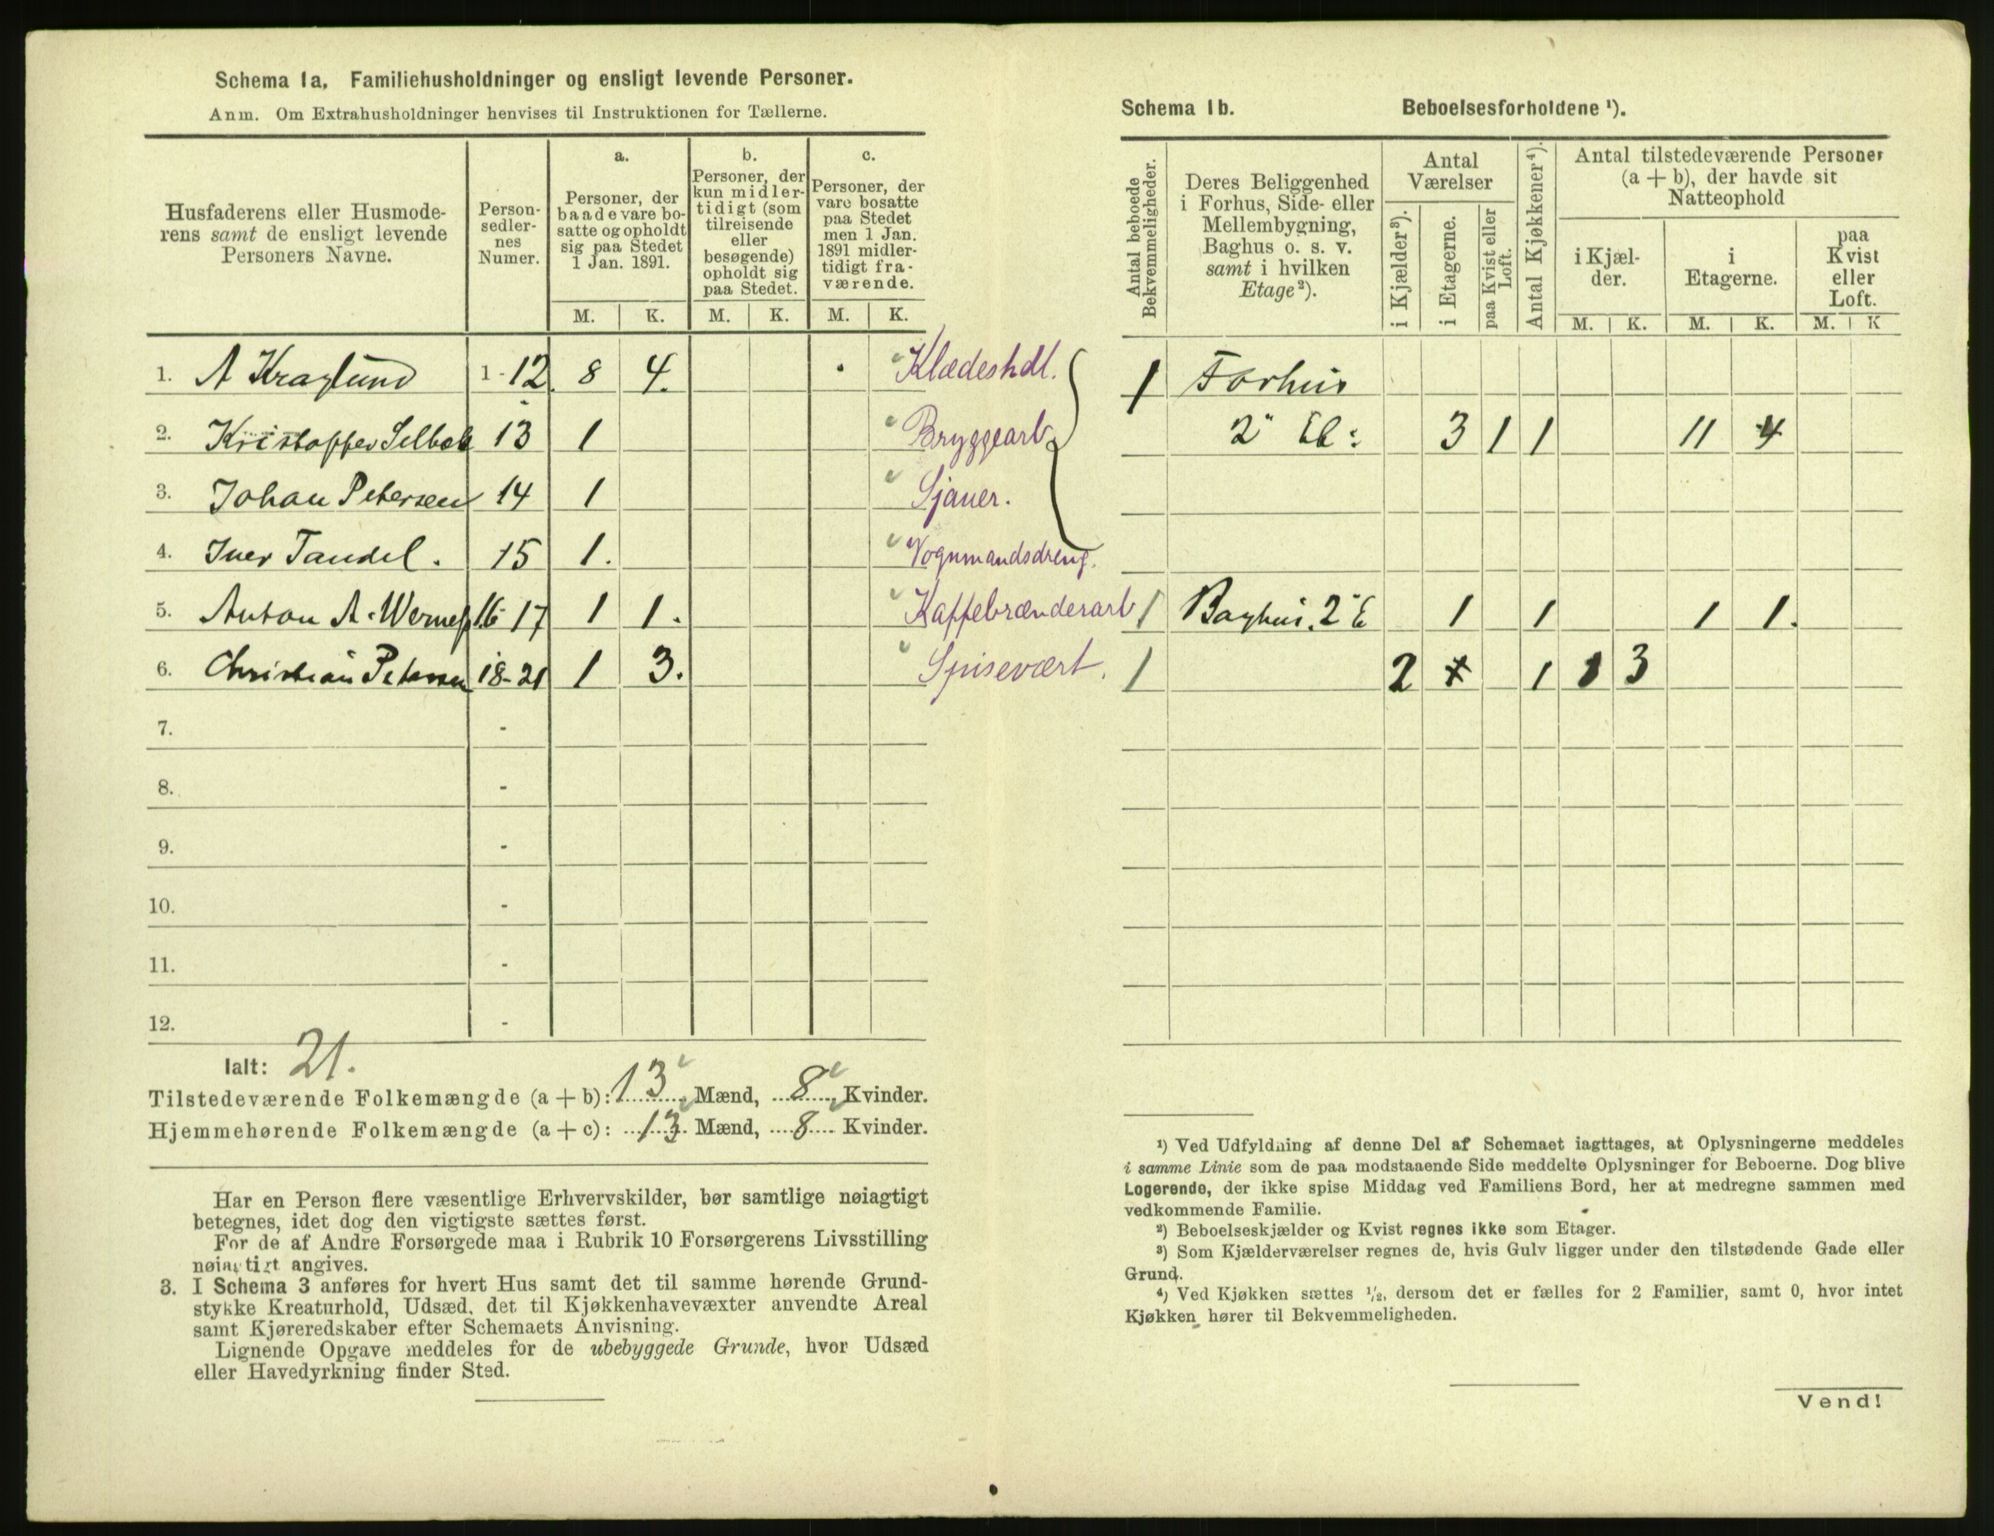 Schema 1a. Familiehusholdninger og ensligt levende Personer.
Anm. Om Extrahusholdninger henvises til Instruktionen for Tællerne.
Husfaderens eller Husmode-
rens samt de ensligt levende
Personers Navne.
Person-
sedler-
nes
Numer.
a.
Personer, der
baade vare bo-
satte og opholdt
sig paa Stedet
1 Jan. 1891.
b.
Personer, der
kun midler-
tidigt (som
tilreisende
eller
besøgende)
opholdt sig
paa Stedet.
c.
Personer, der
vare bosatte
paa Stedet
men 1 Jan.
1891 midler-
tidigt fra-
værende.
M. K. M. K. M. K.
1. A Kraglund 1-12. 8 4. Klædeshdl.
2. Kristoffer Selbek 13 1 Bryggearb
3. Johan Petersen 14 1 Sjauer.
4. Iver Tandel. 15 1. Vognmandsdreng.
5. Anton A. 16-17 1 1. Kaffebrænderarb
6. Christian Petersen 18-21 1 3. Spisevært.
7. -
8. -
9. -
10. -
11. -
12. -
Ialt: 21.
Tilstedeværende Folkemængde (a + b): 13 Mænd, 8 Kvinder.
Hjemmehørende Folkemængde (a + c): 13 Mænd, 8 Kvinder.
Har en Person flere væsentlige Erhvervskilder, bør samtlige nøiagtigt
betegnes, idet dog den vigtigste sættes først.
For de af Andre Forsørgede maa i Rubrik 10 Forsørgerens Livsstilling
nøiagtigt angives.
3. I Schema 3 anføres for hvert Hus samt det til samme hørende Grund-
stykke Kreaturhold, Udsæd, det til Kjøkkenhavevæxter anvendte Areal
samt Kjøreredskaber efter Schemaets Anvisning.
Lignende Opgave meddeles for de ubebyggede Grunde, hvor Udsæd
eller Havedyrkning finder Sted.
Schema 1b. Beboelsesforholdene ¹).
Antal beboede
Bekvemmeligheder.
Deres Beliggenhed
i Forhus, Side- eller
Mellembygning,
Baghus o. s. v.
samt i hvilken
Etage²).
Antal
Værelser
i Kjælder³).
i Etagerne.
paa Kvist eller
Loft.
Antal Kjøkkener⁴).
Antal tilstedeværende Personer
(a + b), der havde sit
Natteophold
i Kjæl-
der.
i
Etagerne.
paa
Kvist
eller
Loft.
M. K. M. K. M. K
1 Forhus
2" Et: 3 1 1 11 4
1 Baghus. 2" E 1 1 1 1.
1 2 1 1 3
¹) Ved Udfyldning af denne Del af Schemaet iagttages, at Oplysningerne meddeles
i samme Linie som de paa modstaaende Side meddelte Oplysninger for Beboerne. Dog blive
Logerende, der ikke spise Middag ved Familiens Bord, her at medregne sammen med
vedkommende Familie.
²) Beboelseskjælder og Kvist regnes ikke som Etager.
³) Som Kjælderværelser regnes de, hvis Gulv ligger under den tilstødende Gade eller
Grund.
⁴) Ved Kjøkken sættes ¹/₂, dersom det er fælles for 2 Familier, samt 0, hvor intet
Kjøkken hører til Bekvemmeligheden.
Vend!